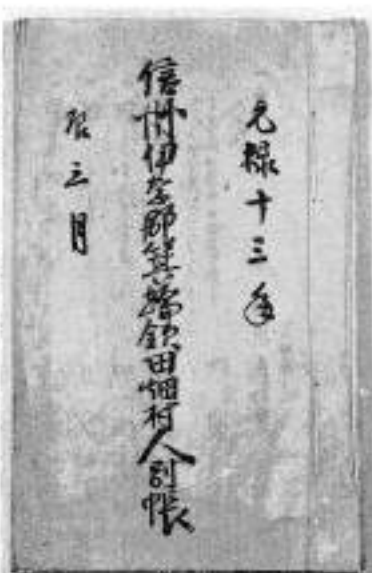 元禄十三年
信州伊奈郡箕輪領田畑村人別帳
辰三月